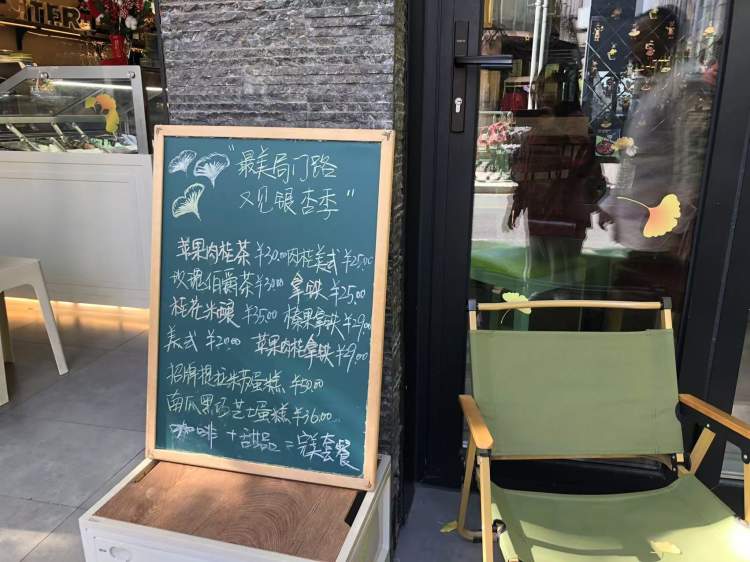 ITER
"最美局门路
又见银杏季"
苹果肉桂茶 ¥30.00 肉桂美式 ¥25.00
玫瑰伯爵茶 ¥30.00 拿铁 ¥25.00
桂花米酿 ¥35.00 榛果拿铁 ¥29.00
美式 ¥20.00 苹果肉桂拿铁 ¥29.00
招牌提拉米苏蛋糕 ¥50.00
南瓜黑巧芝士蛋糕 ¥36.00
咖啡 + 甜品 = 完美套餐